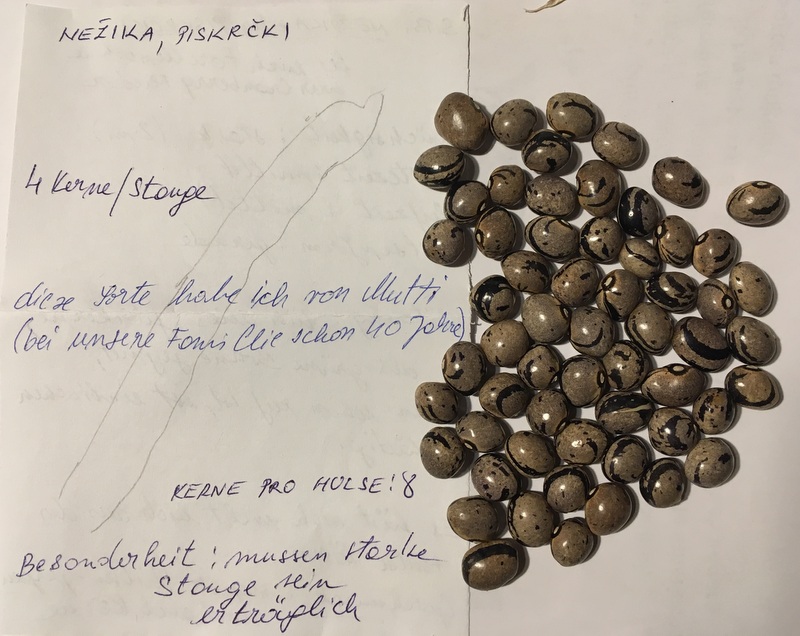 NEŽIKA, PISKRČKI
4 Kerne/Stange
diese Sorte habe ich von Mutti
(bei unsere Familie schon 40 Jahre)
KERNE PRO HÜLSE: 8
Besonderheit: mussen starke
Stange sein
erträglich